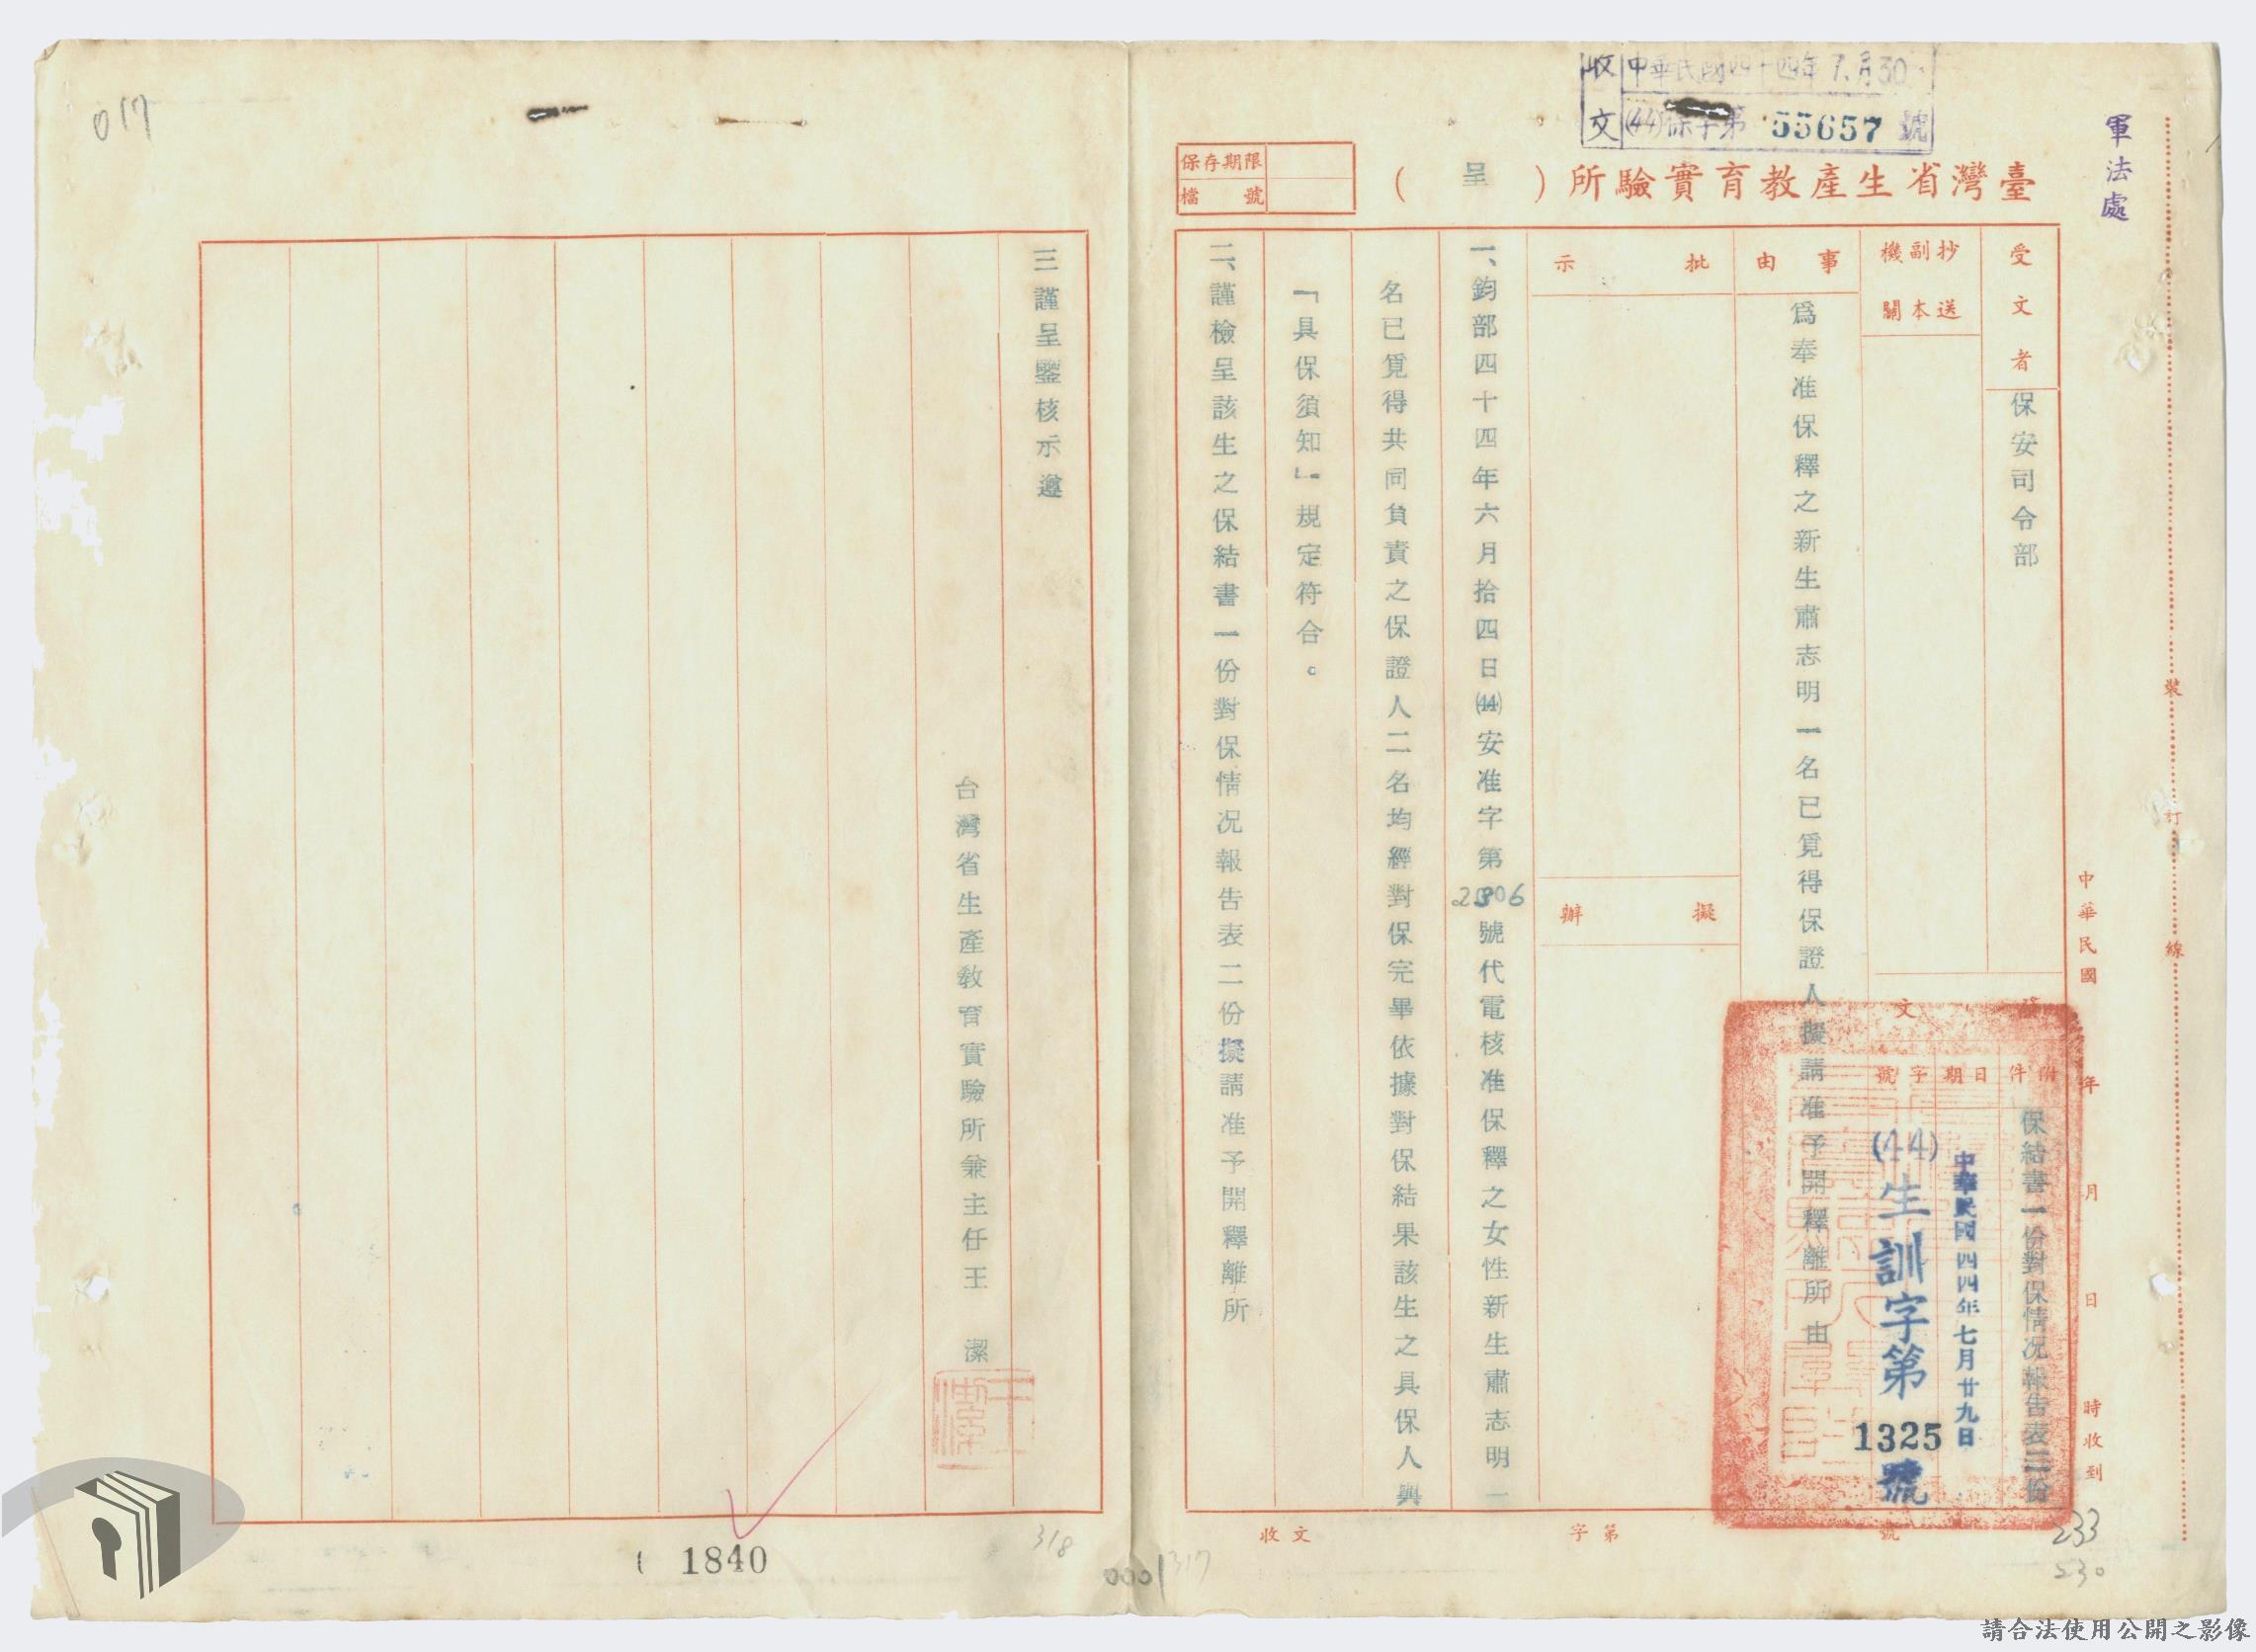 軍法處
收文
中華民國四十四年7月30
(44)保字第55657號
臺灣省生產教育實驗所(呈)
保存期限
檔號
受文者
保安司令部
抄送副本機關
發文
附件
保結書一份對保情况報告表二份
日期
中華民國四四年七月廿九日
字號
(44)生訓字第1325號
事由
爲奉准保釋之新生肅志明一名已覓得保證人擬請准予開釋離所由
批示
擬辦
一、鈞部四十四年六月拾四日(44)安准字第2306號代電核准保釋之女性新生肅志明一
名已覓得共同負責之保證人二名均經對保完畢依據對保結果該生之具保人與
「具保須知」規定符合。
二、謹檢呈該生之保結書一份對保情况報告表二份擬請准予開釋離所
三謹呈鑒核示遵
台灣省生產教育實驗所兼主任王 潔
王潔
中華民國 年 月 日 時收到
裝訂線
收文 字第 號
017
1840
318
0001
317
233
230
請合法使用公開之影像